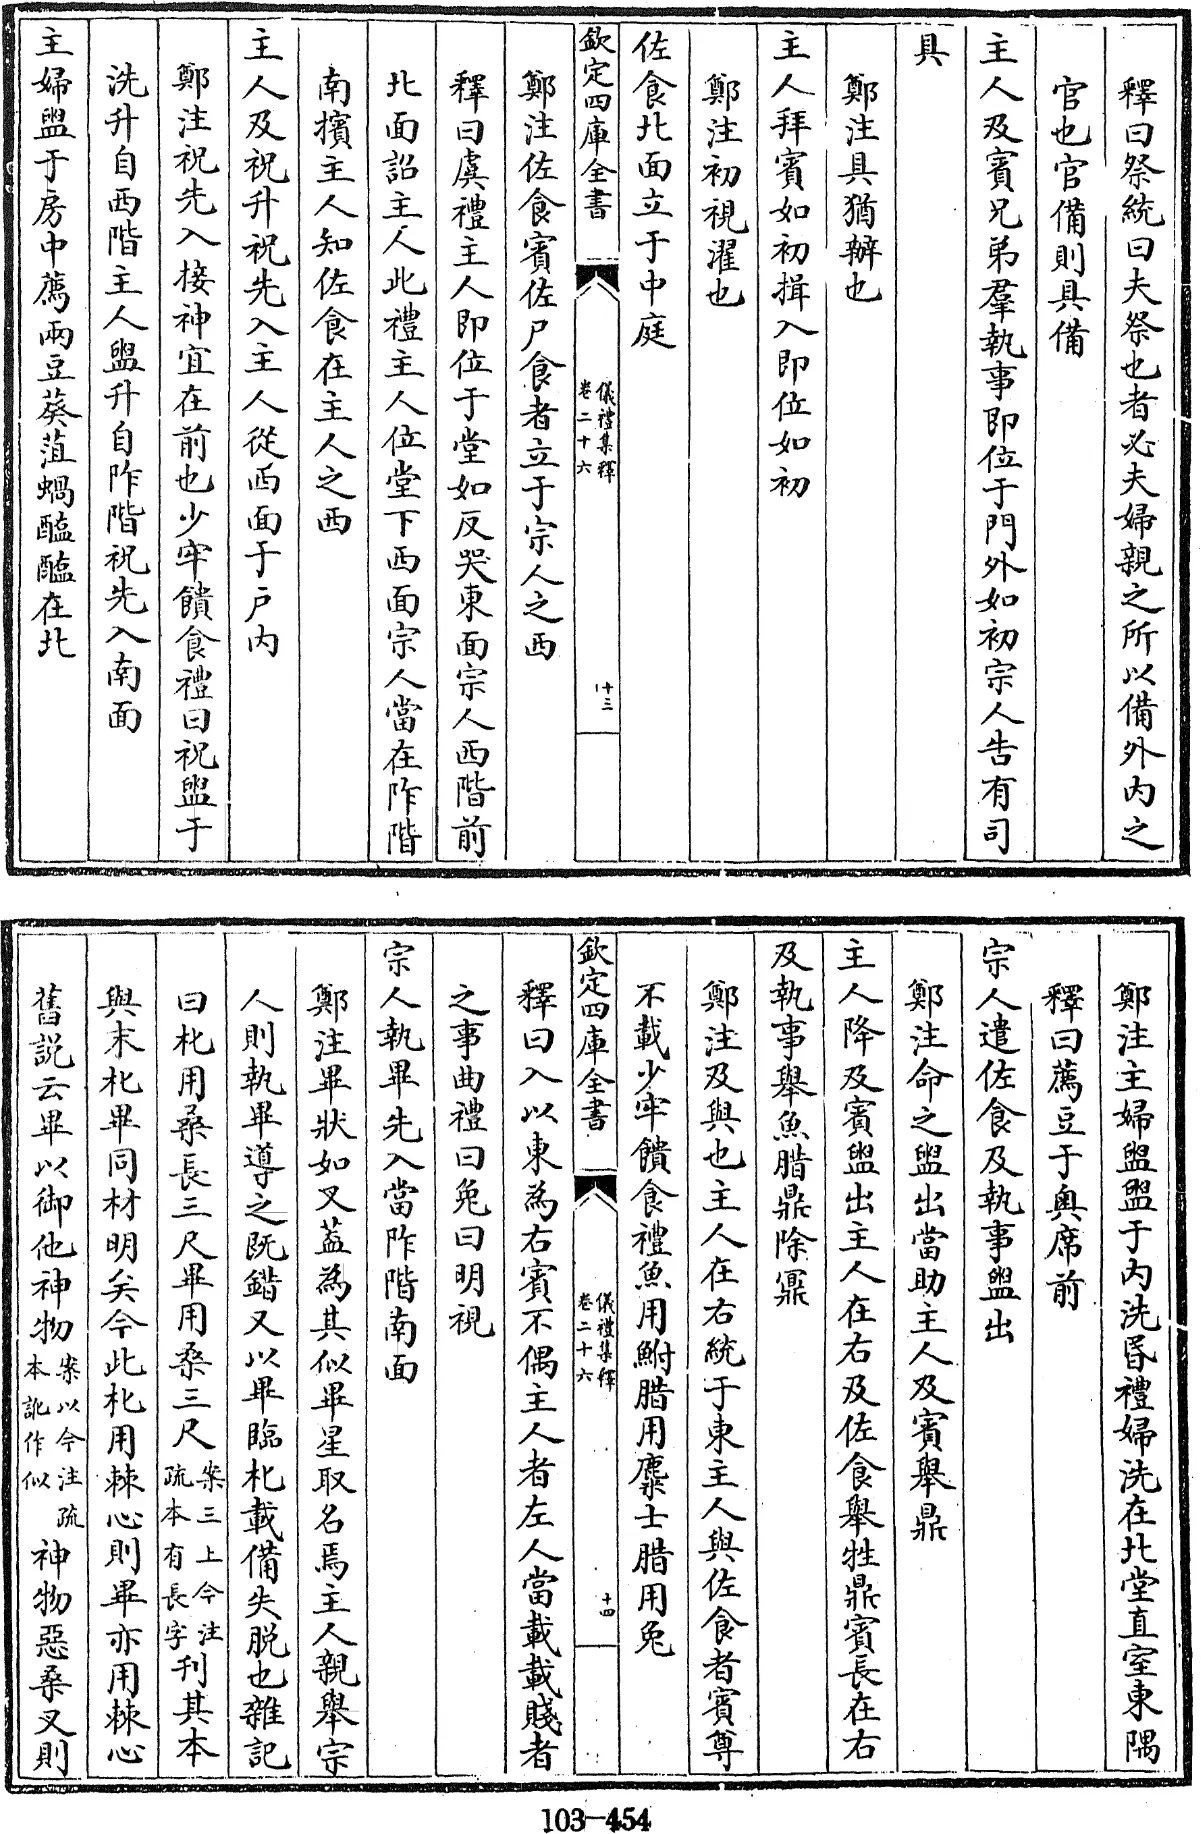 釋曰祭統曰夫祭也者必夫婦親之所以備外内之
官也官備則具備
主人及賓兄弟羣執事即位于門外如初宗人告有司
具
鄭注具猶辦也
主人拜賓如初揖入即位如初
鄭注初視濯也
佐食北面立于中庭
欽定四庫全書
儀禮集釋
卷二十六
十三
鄭注佐食賓佐尸食者立于宗人之西
釋曰虞禮主人即位于堂如反哭東面宗人西階前
北面詔主人此禮主人位堂下西面宗人當在阼階
南擯主人知佐食在主人之西
主人及祝升祝先入主人從西面于户内
鄭注祝先入接神宜在前也少牢饋食禮曰祝盥于
洗升自西階主人盥升自阼階祝先入南面
主婦盥于房中薦兩豆葵菹蝸醢醢在北
鄭注主婦盥盥于内洗昏禮婦洗在北堂直室東隅
釋曰薦豆于奥席前
宗人遣佐食及執事盥出
鄭注命之盥出當助主人及賓舉鼎
主人降及賓盥出主人在右及佐食舉牲鼎賓長在右
及執事舉魚腊鼎除鼏
鄭注及與也主人在右統于東主人與佐食者賓尊
不載少牢饋食禮魚用鮒腊用麋士腊用兔
欽定四庫全書
儀禮集釋
卷二十六
十四
釋曰入以東為右賓不偶主人者左人當載載賤者
之事曲禮曰兔曰明視
宗人執畢先入當阼階南面
鄭注畢狀如叉葢為其似畢星取名焉主人親舉宗
人則執畢導之既錯又以畢臨朼載備失脱也雜記
曰朼用桑長三尺畢用桑三尺案三上今注疏本有長字刊其本
與末朼畢同材明矣今此朼用棘心則畢亦用棘心
舊説云畢以御他神物案以今注疏本訛作似神物惡桑叉則
103-454